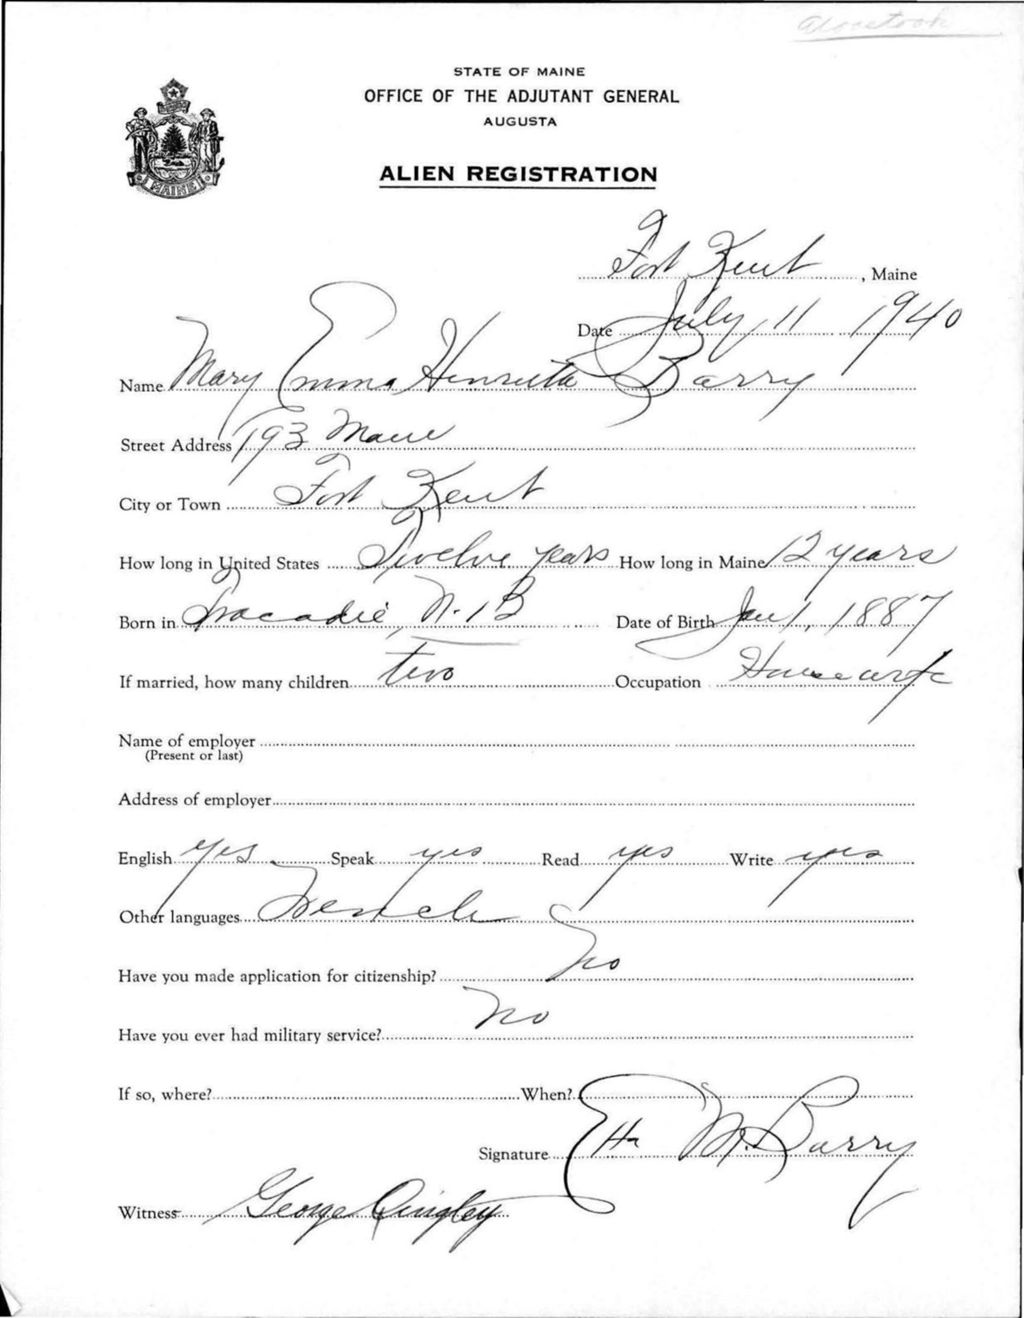 Aroostook
STATE OF MAINE
OFFICE OF THE ADJUTANT GENERAL
AUGUSTA
ALIEN REGISTRATION
MAINE
Fort Kent, Maine
Date July 11 1940
Name Mary Emma Henrietta Barry
Street Address 193 Main
City or Town Fort Kent
How long in United States Twelve years How long in Maine 12 years
Born in Tracadie, N.B Date of Birth Jan 1, 1887
If married, how many children two Occupation Housewife
Name of employer
(Present or last)
Address of employer
English yes Speak yes Read yes Write yes
Other languages French
Have you made application for citizenship? No
Have you ever had military service? No
If so, where? When?
Signature Etta M. Barry
Witness George